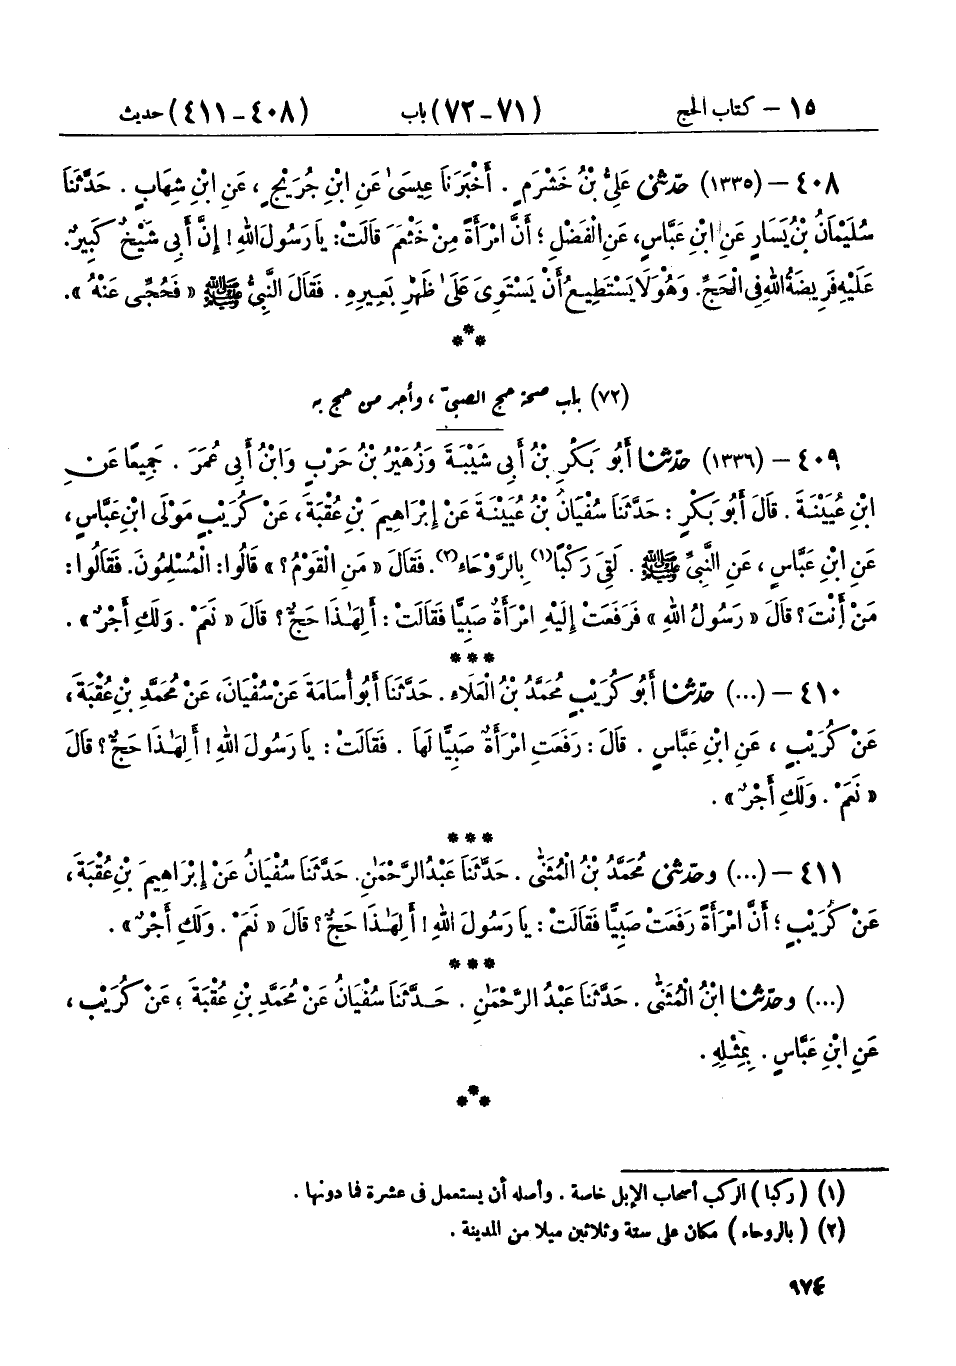 ١٥ – كتاب الحج (٧١-٧٢) باب (٤٠٨-٤١١) حديث
٤٠٨ – (١٣٣٥) حَدَّثَنِي عَلِيُّ بْنُ خَشْرَمٍ. أَخْبَرَنَا عِيسَىٰ عَنِ ابْنِ جُرَيْجٍ، عَنِ ابْنِ شِهَابٍ. حَدَّثَنَا
سُلَيْمَانُ بْنُ يَسَارٍ عَنِ ابْنِ عَبَّاسٍ، عَنِ الْفَضْلِ؛ أَنَّ امْرَأَةً مِنْ خَثْعَمَ قَالَتْ: يَا رَسُولَ اللهِ! إِنَّ أَبِي شَيْخٌ كَبِيرٌ.
عَلَيْهِ فَرِيضَةُ اللهِ فِي الْحَجِّ. وَهُوَ لَا يَسْتَطِيعُ أَنْ يَسْتَوِيَ عَلَىٰ ظَهْرِ بَعِيرِهِ. فَقَالَ النَّبِيُّ ﷺ « فَحُجِّي عَنْهُ ».
***
(٧٢) باب صحة حج الصبيّ، وأجر من حج به
٤٠٩ – (١٣٣٦) حَدَّثَنَا أَبُو بَكْرِ بْنُ أَبِي شَيْبَةَ وَزُهَيْرُ بْنُ حَرْبٍ وَابْنُ أَبِي عُمَرَ. جَمِيعًا عَنِ
ابْنِ عُيَيْنَةَ. قَالَ أَبُو بَكْرٍ: حَدَّثَنَا سُفْيَانُ بْنُ عُيَيْنَةَ عَنْ إِبْرَاهِيمَ بْنِ عُقْبَةَ، عَنْ كُرَيْبٍ مَوْلَى ابْنِ عَبَّاسٍ،
عَنِ ابْنِ عَبَّاسٍ، عَنِ النَّبِيِّ ﷺ. لَقِيَ رَكْبًا(١) بِالرَّوْحَاءِ(٢). فَقَالَ « مَنِ الْقَوْمُ؟ » قَالُوا: الْمُسْلِمُونَ. فَقَالُوا:
مَنْ أَنْتَ؟ قَالَ « رَسُولُ اللهِ » فَرَفَعَتْ إِلَيْهِ امْرَأَةٌ صَبِيًّا فَقَالَتْ: أَلِهَٰذَا حَجٌّ؟ قَالَ « نَعَمْ. وَلَكِ أَجْرٌ ».
***
٤١٠ – (...) حَدَّثَنَا أَبُو كُرَيْبٍ مُحَمَّدُ بْنُ الْعَلَاءِ. حَدَّثَنَا أَبُو أُسَامَةَ عَنْ سُفْيَانَ، عَنْ مُحَمَّدِ بْنِ عُقْبَةَ،
عَنْ كُرَيْبٍ، عَنِ ابْنِ عَبَّاسٍ. قَالَ: رَفَعَتِ امْرَأَةٌ صَبِيًّا لَهَا. فَقَالَتْ: يَا رَسُولَ اللهِ! أَلِهَٰذَا حَجٌّ؟ قَالَ
« نَعَمْ. وَلَكِ أَجْرٌ ».
***
٤١١ – (...) وَحَدَّثَنِي مُحَمَّدُ بْنُ الْمُثَنَّىٰ. حَدَّثَنَا عَبْدُ الرَّحْمَٰنِ. حَدَّثَنَا سُفْيَانُ عَنْ إِبْرَاهِيمَ بْنِ عُقْبَةَ،
عَنْ كُرَيْبٍ؛ أَنَّ امْرَأَةً رَفَعَتْ صَبِيًّا فَقَالَتْ: يَا رَسُولَ اللهِ! أَلِهَٰذَا حَجٌّ؟ قَالَ « نَعَمْ. وَلَكِ أَجْرٌ ».
***
(...) وَحَدَّثَنَا ابْنُ الْمُثَنَّىٰ. حَدَّثَنَا عَبْدُ الرَّحْمَٰنِ. حَدَّثَنَا سُفْيَانُ عَنْ مُحَمَّدِ بْنِ عُقْبَةَ؛ عَنْ كُرَيْبٍ،
عَنِ ابْنِ عَبَّاسٍ. بِمِثْلِهِ.
***
(١) (ركبا) الركب أصحاب الإبل خاصة. وأصله أن يستعمل في عشرة فما دونها.
(٢) (بالروحاء) مكان على ستة وثلاثين ميلا من المدينة.
٩٧٤